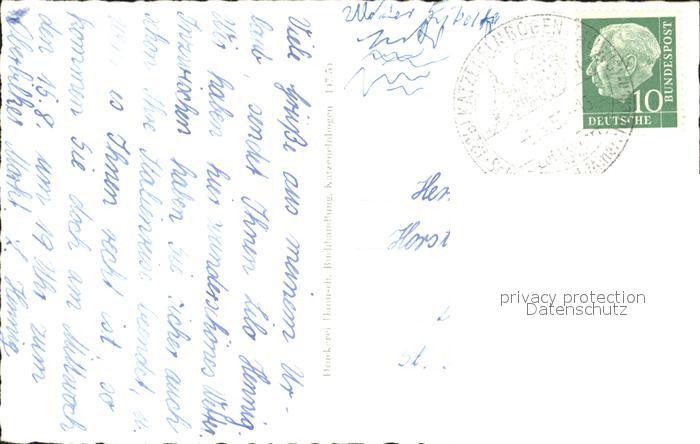 Viele Grüße aus meinem Ur-
laub, sendet Ihnen Lilo Hennig.
Wir haben hier wunderschönes Wetter.
Inzwischen haben Sie sicher auch
schon Ihre Italienreise beendet, u.
es Ihnen recht ist, so
kommen Sie doch am Mittwoch
den 15.8. um 19 Uhr zum
Markt L. Hennig
Druckerei Hannusch, Buchhandlung, Katzenelnbogen
KATZENELNBOGEN
10
DEUTSCHE
BUNDESPOST
Her
Horst
St.
privacy protection
Datenschutz